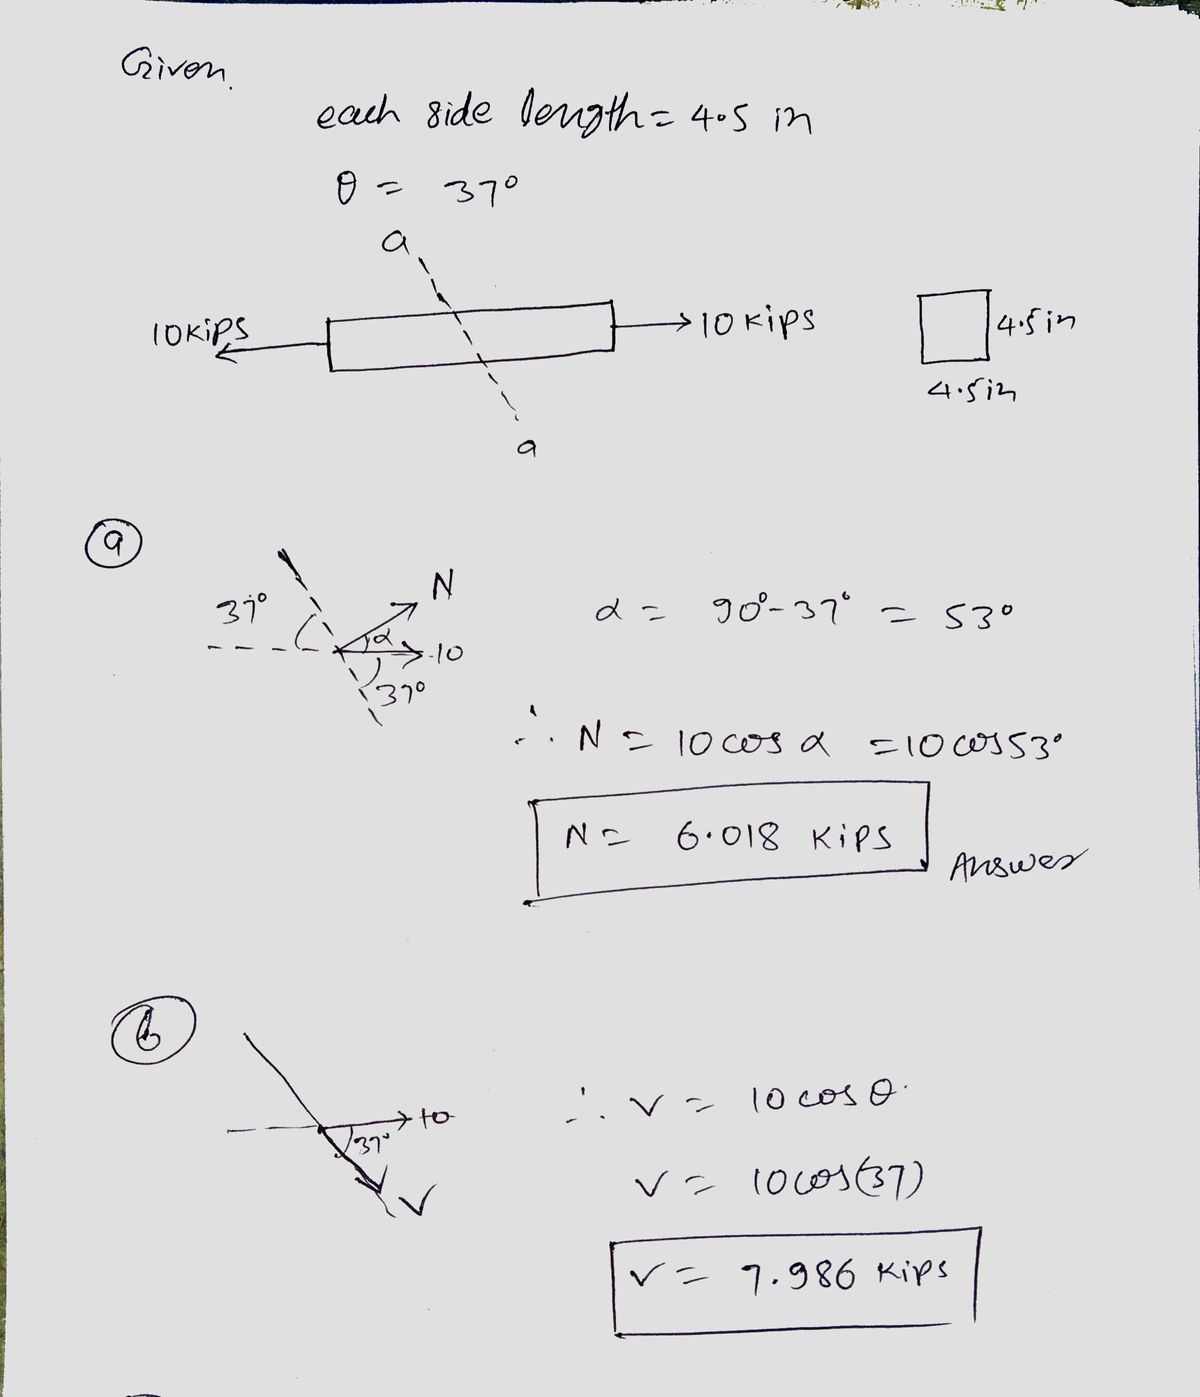 Given.
each side length = 4.5 in
θ = 37°
a
10 KiPS
→ 10 KiPS
4.5 in
4.5 in
a
(a)
37°
N
α
10
37°
α = 90° - 37° = 53°
∴ N = 10 cos α = 10 cos 53°
N = 6.018 KiPS
Answer
(b)
10
37°
V
∴ V = 10 cos θ.
V = 10 cos (37)
V = 7.986 KiPS